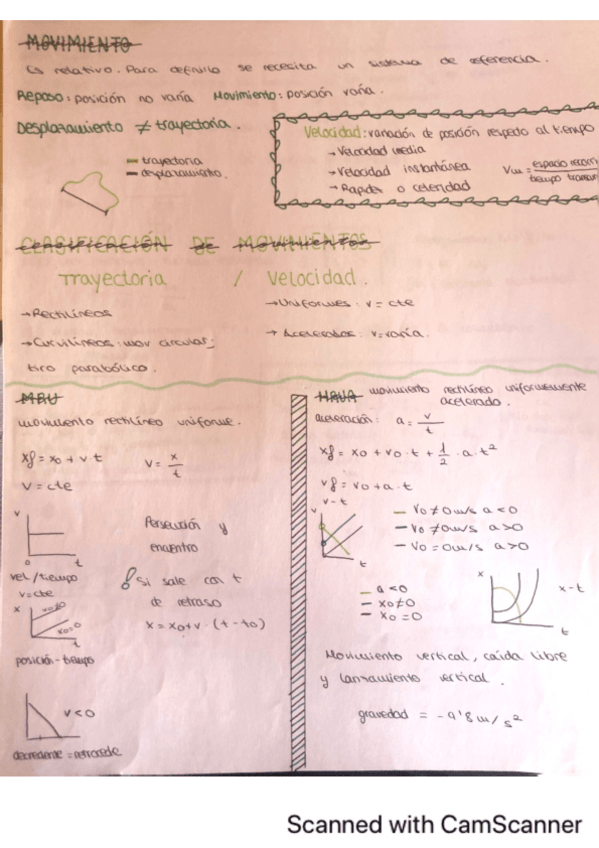 MOVIMIENTO
Es relativo. Para definirlo se necesita un sistema de referencia.
Reposo: posición no varía Movimiento: posición varía.
Desplazamiento ≠ trayectoria.
— trayectoria
— desplazamiento.
Velocidad: variación de posición respecto al tiempo
→ Velocidad media
→ Velocidad instantánea
→ Rapidez o celeridad
Vm = espacio recorri
tiempo transcur
CLASIFICACIÓN DE MOVIMIENTOS
Trayectoria / Velocidad.
→ Rectilíneos
→ Curvilíneos: mov circular;
tiro parabólico.
→ Uniformes: v = cte
→ Acelerados: v = varía.
MRU
movimiento rectilíneo uniforme.
xf = x0 + v · t
v = x / t
v = cte
v
0 t
vel / tiempo
v = cte
Persecución y
encuentro
! Si sale con t
de retraso
x = x0 + v · (t - t0)
x
x0≠0
x0=0
t
posición - tiempo
v < 0
decreciente = retrocede
MRUA movimiento rectilíneo uniformemente
acelerado.
aceleración: a = v / t
xf = x0 + v0 · t + 1/2 · a · t²
vf = v0 + a · t
v - t
v
t
— v0 ≠ 0 m/s a < 0
— v0 ≠ 0 m/s a > 0
— v0 = 0 m/s a > 0
— a < 0
— x0 ≠ 0
— x0 = 0
x
t
x - t
Movimiento vertical, caída libre
y lanzamiento vertical.
gravedad = - 9'8 m/s²
Scanned with CamScanner